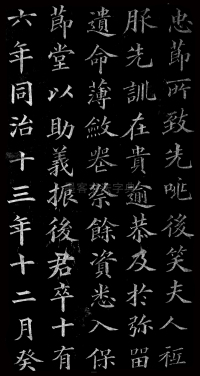 忠節所致先咷後笑夫人祗
服先訓在貴逾恭及於弥留
遺命薄斂罷祭餘資悉入保
節堂以助義振後君卒十有
六年同治十三年十二月癸